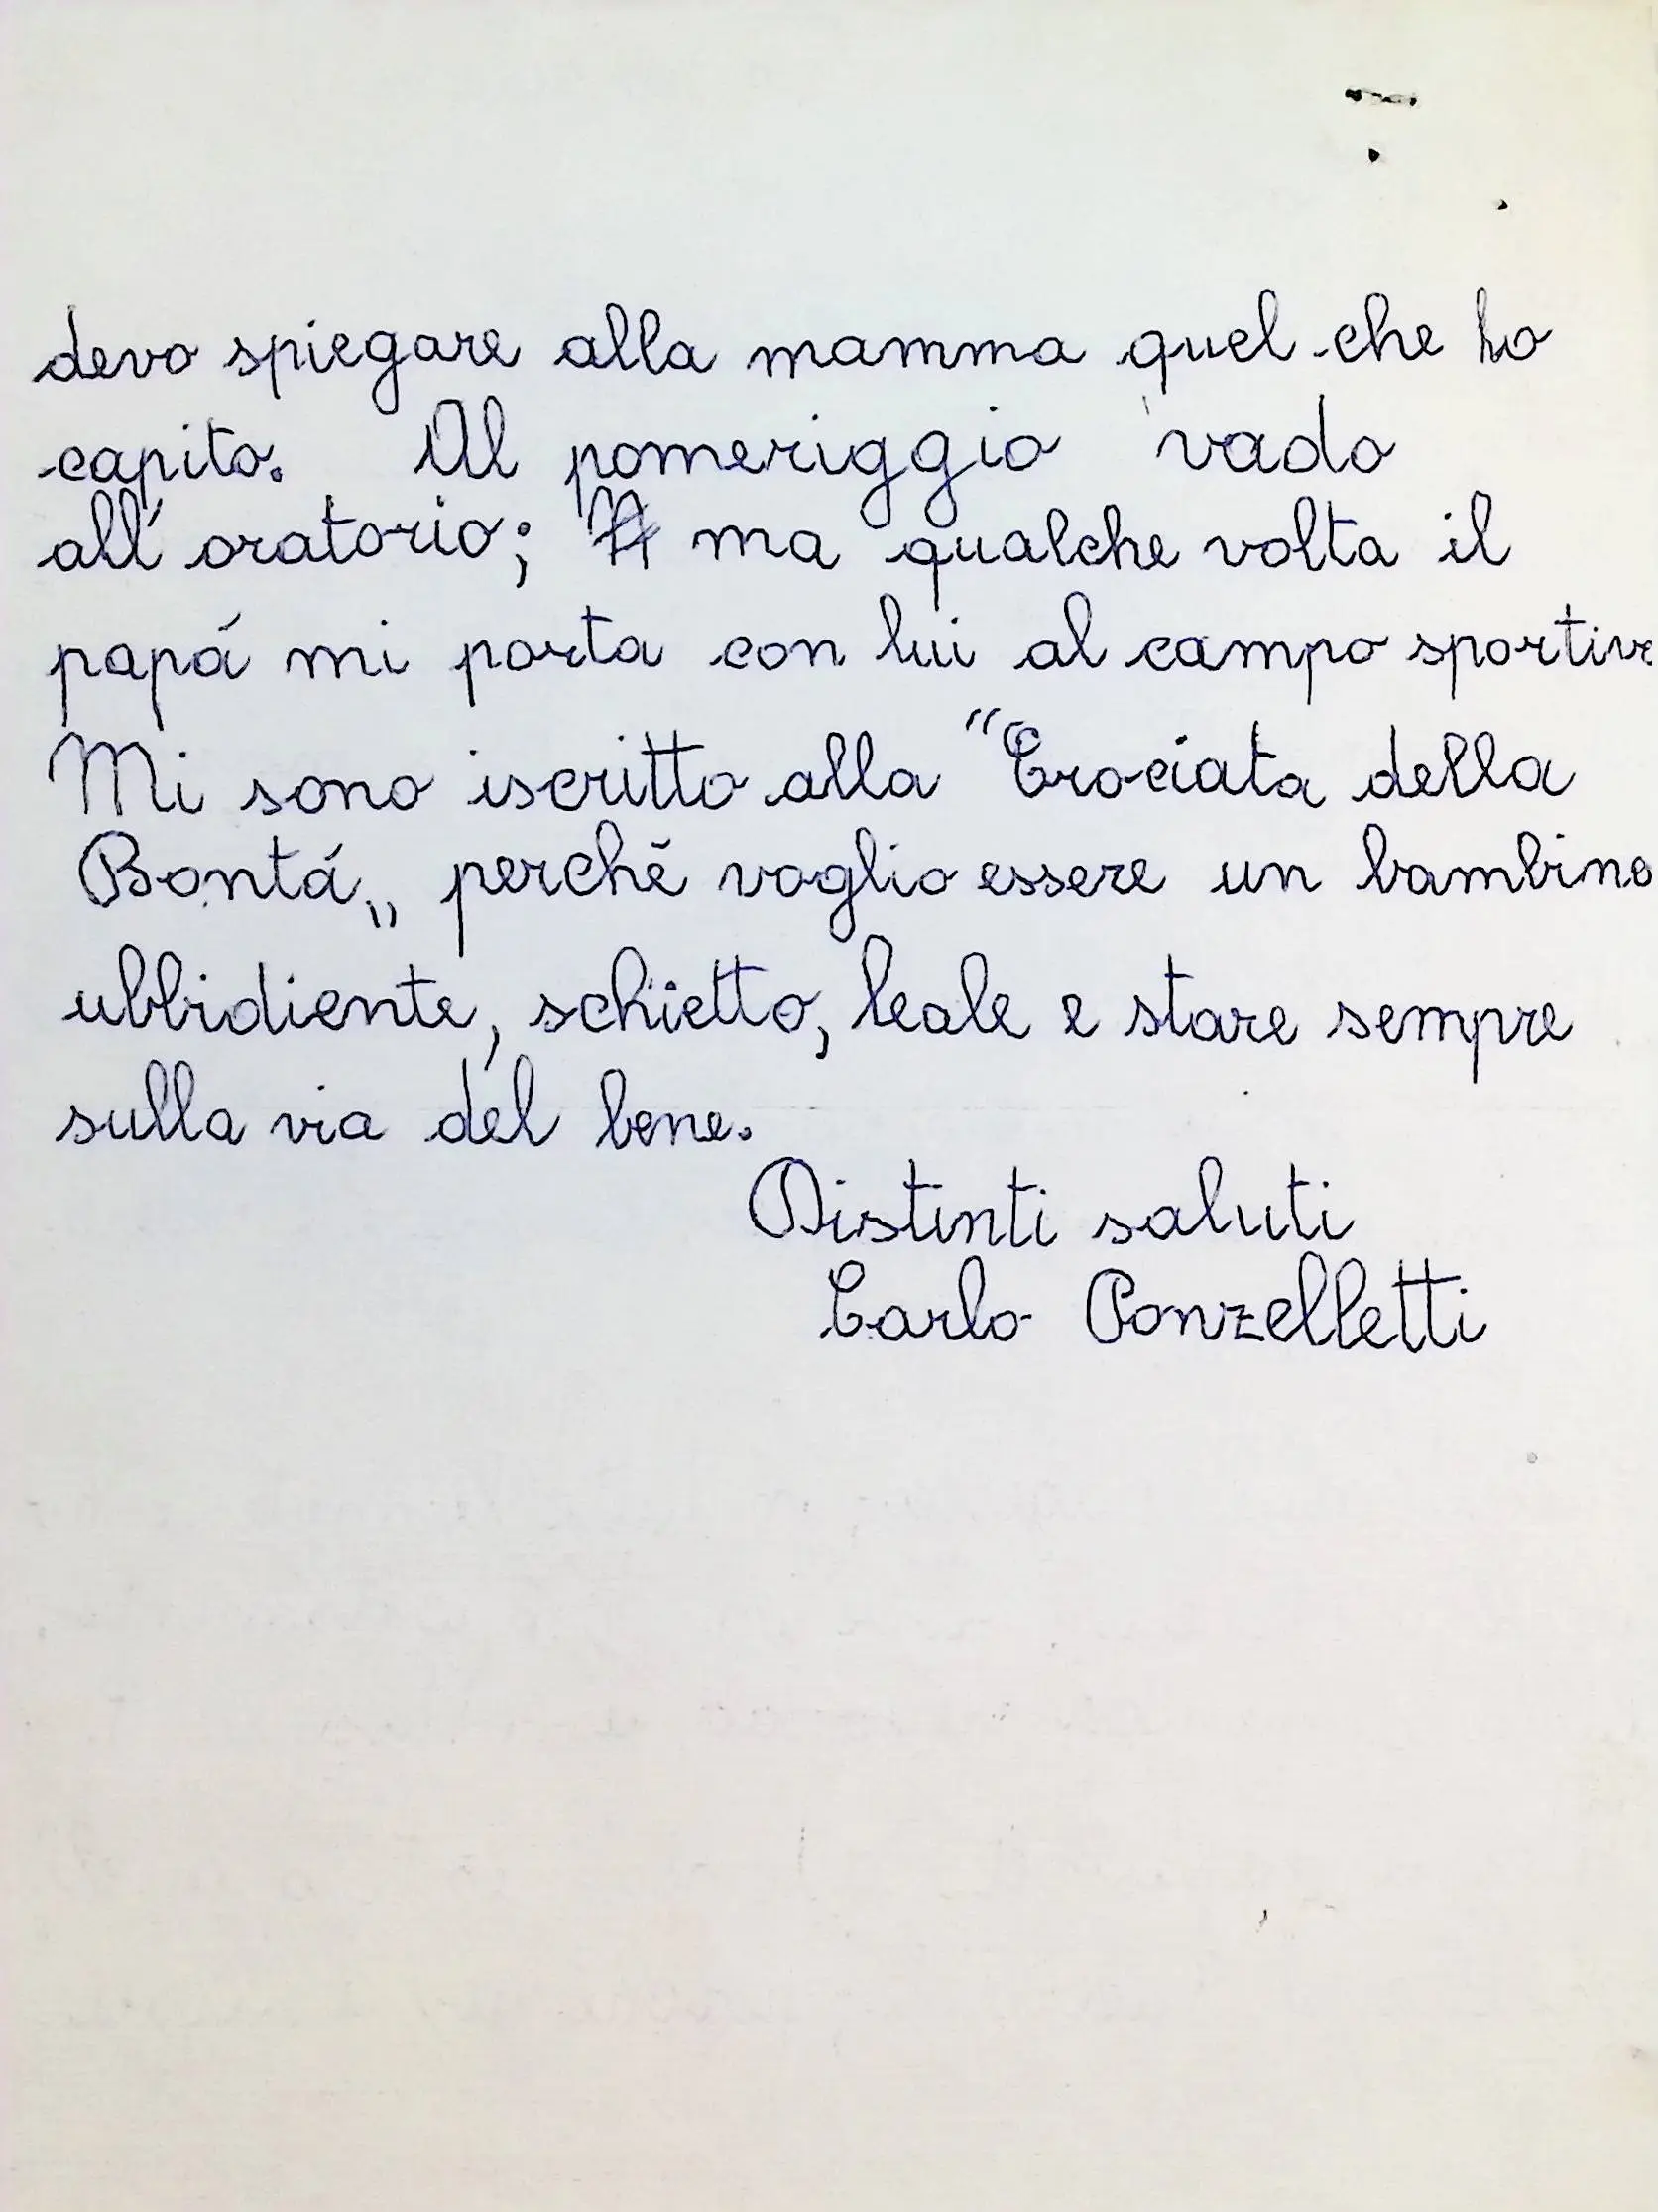 devo spiegare alla mamma quel che ho
capito. Al pomeriggio vado
all'oratorio; ma qualche volta il
papá mi porta con lui al campo sportivo
Mi sono iscritto alla "Crociata della
Bontá„ perché voglio essere un bambino
ubbidiente, schietto, leale e stare sempre
sulla via del bene.
Distinti saluti
Carlo Ponzelletti